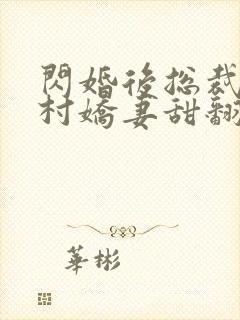 閃婚後總裁
村嬌妻甜翻
華彬